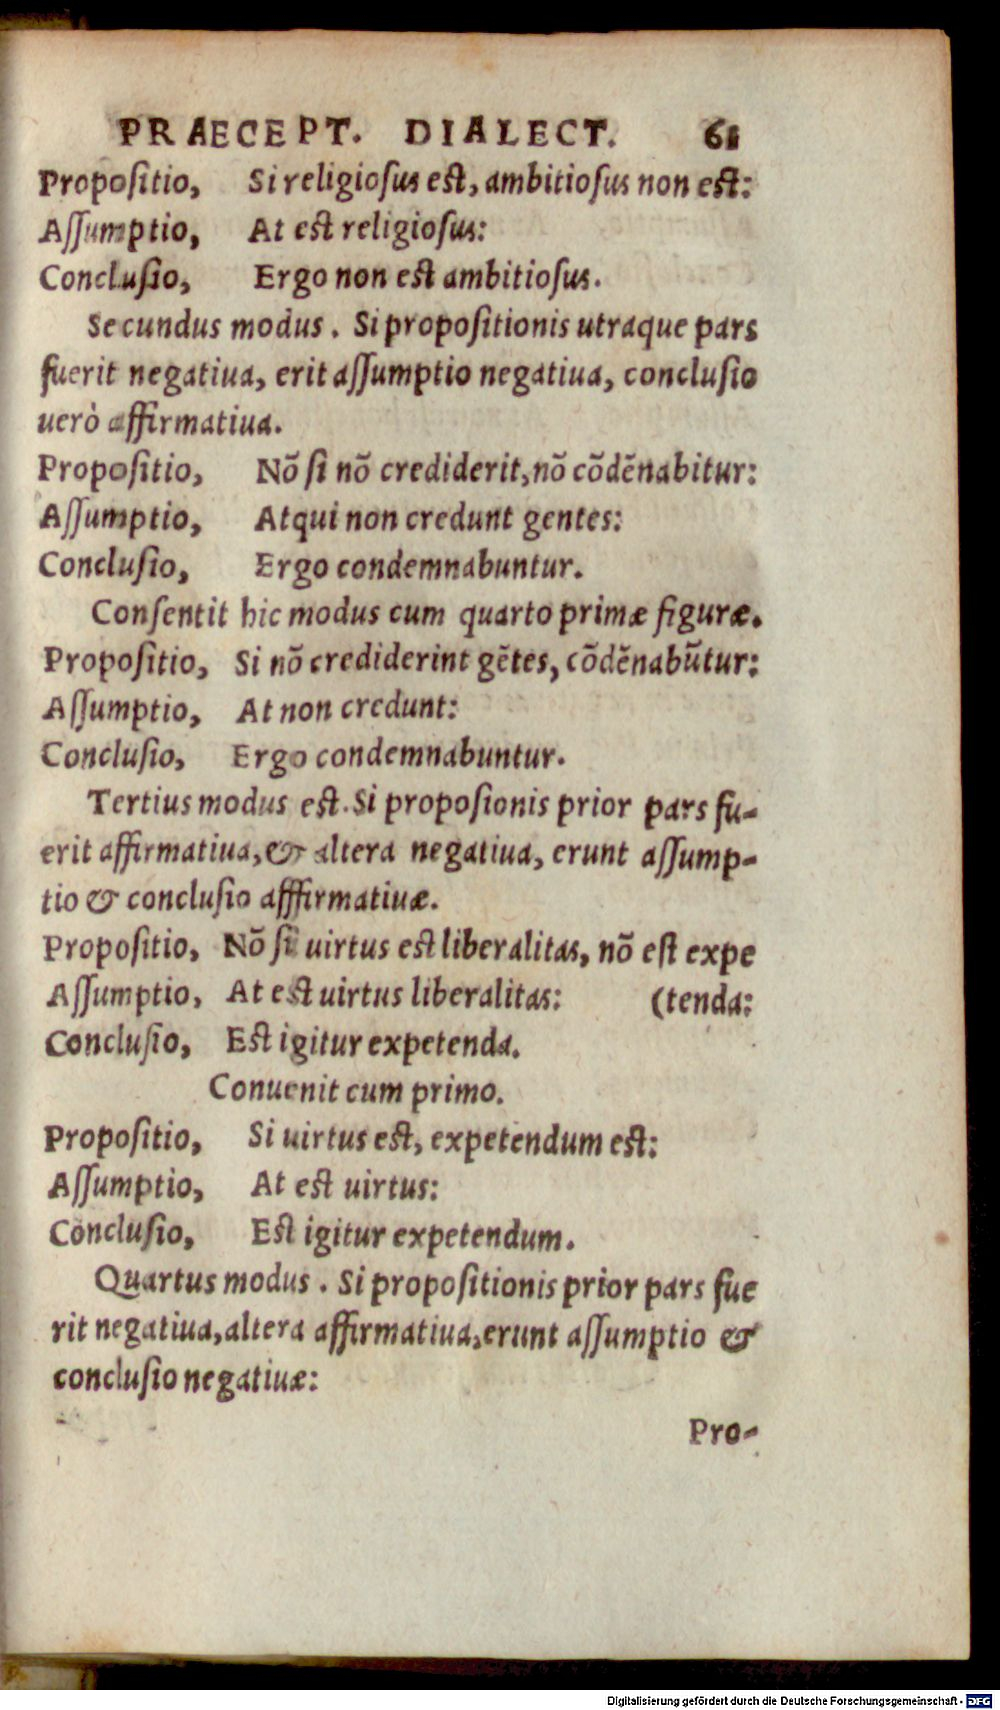 PRAECEPT. DIALECT. 61
Propositio, Si religiosus est, ambitiosus non est:
Assumptio, At est religiosus:
Conclusio, Ergo non est ambitiosus.
Secundus modus. Si propositionis utraque pars
fuerit negatiua, erit assumptio negatiua, conclusio
uerò affirmatiua.
Propositio, Nõ si nõ crediderit, nõ cõdẽnabitur:
Assumptio, Atqui non credunt gentes:
Conclusio, Ergo condemnabuntur.
Consentit hic modus cum quarto primæ figuræ.
Propositio, Si nõ crediderint gẽtes, cõdẽnabũtur:
Assumptio, At non credunt:
Conclusio, Ergo condemnabuntur.
Tertius modus est. Si proposionis prior pars fu-
erit affirmatiua, & altera negatiua, erunt assump-
tio & conclusio afffirmatiuæ.
Propositio, Nõ si uirtus est liberalitas, nõ est expe
Assumptio, At est uirtus liberalitas: (tenda:
Conclusio, Est igitur expetenda.
Conuenit cum primo.
Propositio, Si uirtus est, expetendum est:
Assumptio, At est uirtus:
Conclusio, Est igitur expetendum.
Quartus modus. Si propositionis prior pars fue
rit negatiua, altera affirmatiua, erunt assumptio &
conclusio negatiuæ:
Pro-
Digitalisierung gefördert durch die Deutsche Forschungsgemeinschaft - DFG